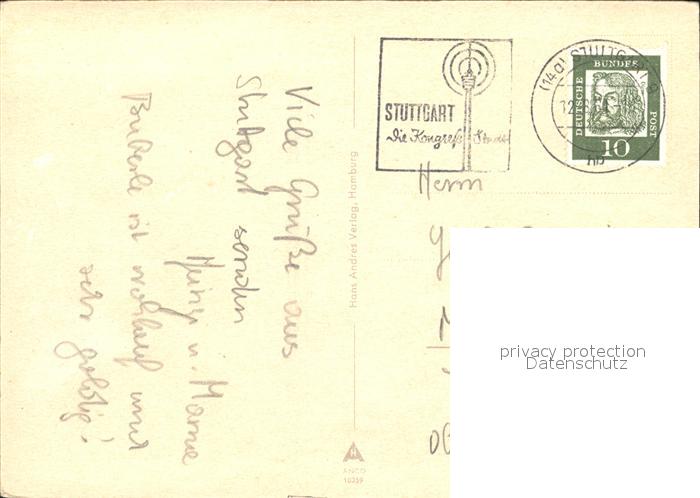 Viele Grüße aus
Stuttgart senden
Heinz u. Mama
ist wohlauf und
sehr goldig!
Hans Andres Verlag, Hamburg
ANCO
10359
STUTTGART
Die Kongreß-Stadt
(14a) STUTTG
12
hb
DEUTSCHE
BUNDES
POST
10
Herrn
privacy protection
Datenschutz